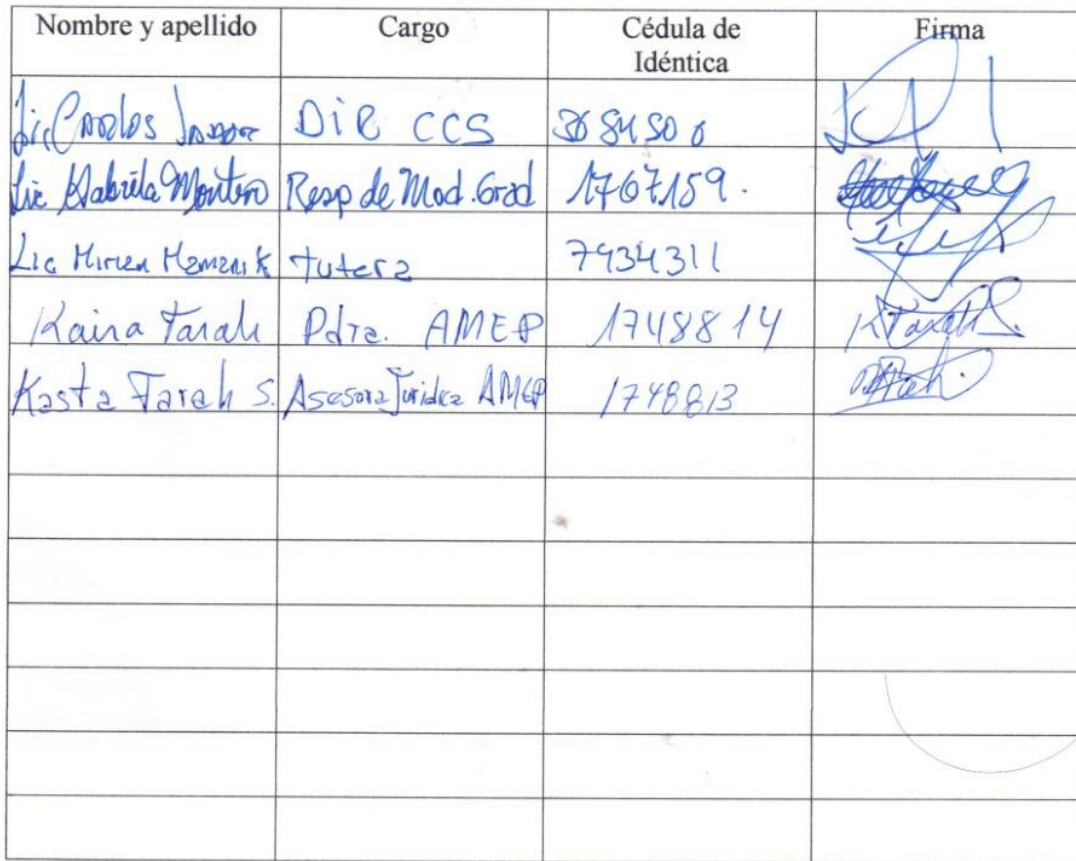 Nombre y apellido Cargo Cédula de Idéntica Firma
Lic Carlos DIR CCS
Lic Gabriela Montero Resp de Mod. Grad 1767159.
Lic Mirien tutora 7434311
Kaira Tarah Pdta. AMEP 1748814 KTarahS.
Kasta Tarah S. Asesora Juridica AMEP 1748813